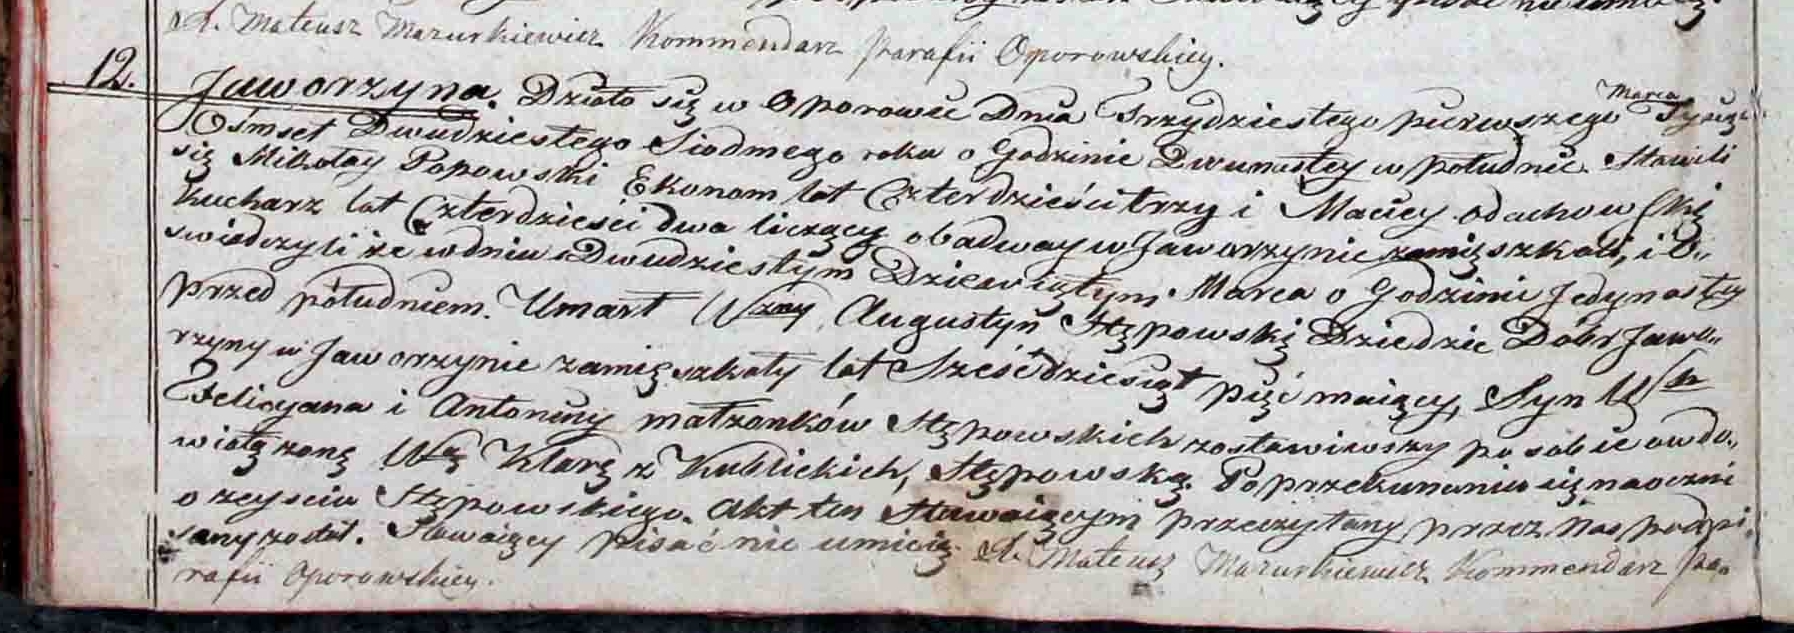 X. Mateusz Mazurkiewicz Kommendarz Parafii Oporowskiey.
12.
Jaworzyna. Działo się w Oporowie Dnia Trzydziestego pierwszego Marca Tysiąc
Ośmset Dwudziestego Siodmego roku o Godzinie Dwunastey w południe. Stawili
się Mikołay Popowski Ekonom lat Czterdzieści trzy i Maciey Adachowski
Kucharz lat Czterdzieści dwa liczący obadway w Jaworzynie zamięszkali, i o„
swiadczyli że w dniu Dwudziestym Dziewiątym Marca o Godzinie Jedynastey
przed południem. Umarł Wzny Augustyn Stępowski Dziedzic Dóbr Jawo„
rzyny w Jaworzynie zamięszkały lat Sześćdziesiąt pięć maiący, Syn W
Felicyana i Antoniny małżonków Stępowskich zostawiwszy po sobie owdo„
wiałą żonę Wą Klarę z Kublickich, Stępowską. Po przekonaniu się naocznie
o zeyściu Stępowskiego. Akt ten Stawaiącym przeczytany przez Nas podpi„
sany został. Stawaiący pisać nie umieią. X. Mateusz Mazurkiewicz Kommendarz Pa„
rafii Oporowskiey.